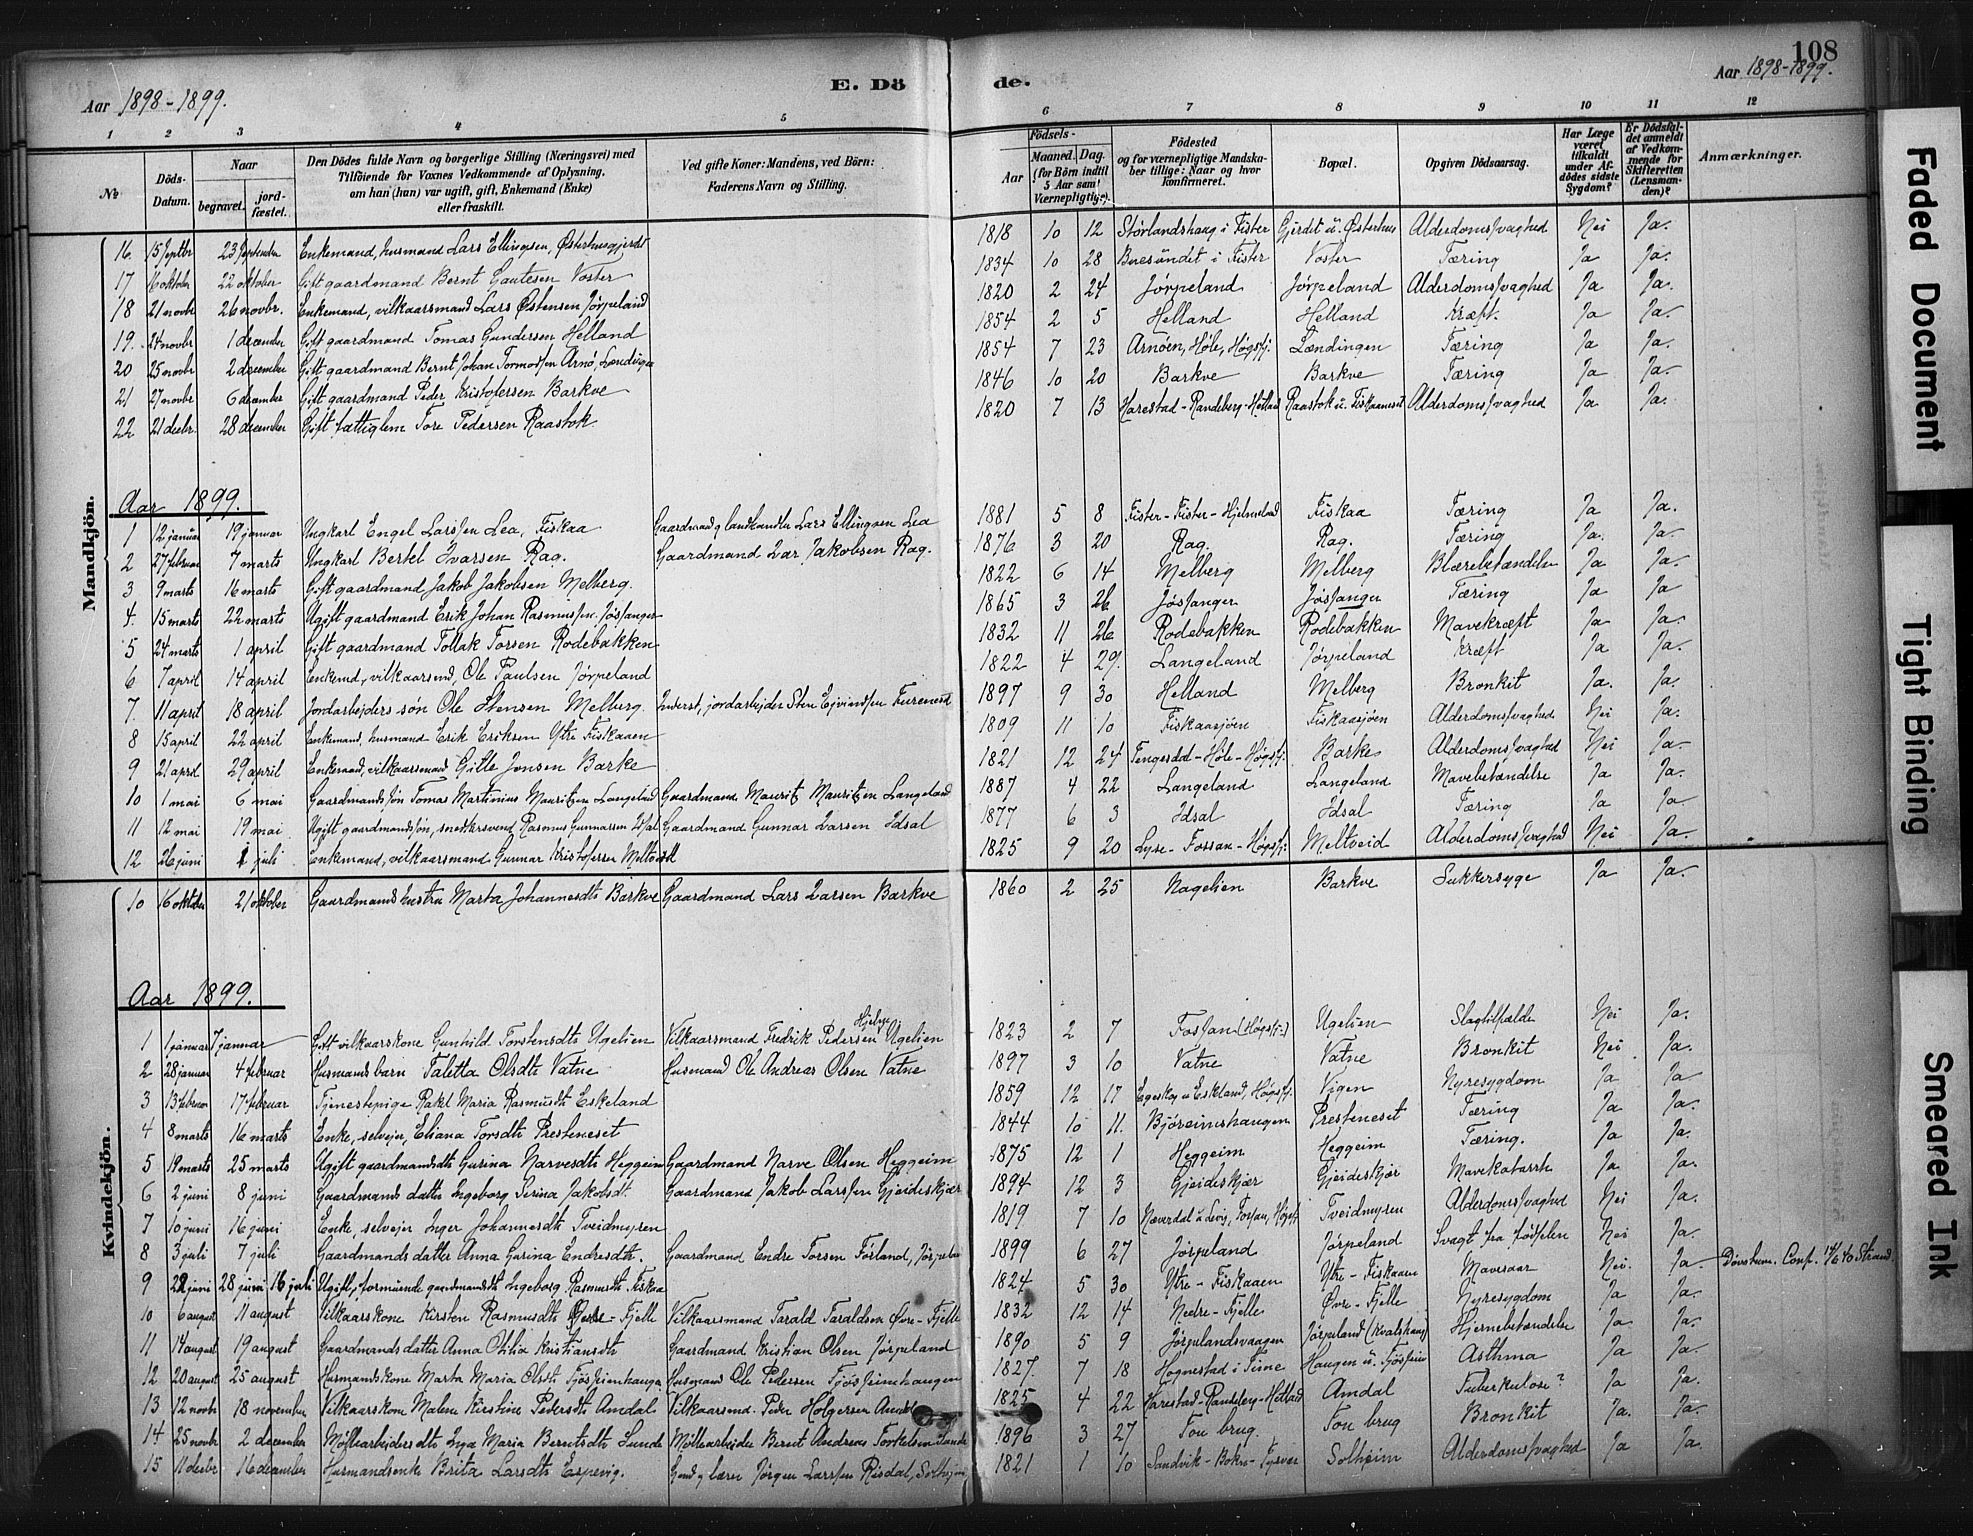 108
Aar 1898-1899.
E. Dö
de.
Aar 1898-1899.
1 2 3 4 5 6 7 8 9 10 11 12
№
Döds-Datum.
Naar
begravet.
jord-fæstet.
Den Dödes fulde Navn og borgerlige Stilling (Næringsvei) med Tilföiende for Voxnes Vedkommende af Oplysning, om han (hun) var ugift, gift, Enkemand (Enke) eller fraskilt.
Ved gifte Koner: Mandens, ved Börn: Faderens Navn og Stilling.
Födsels-
Aar
Maaned. Dag.
(for Börn indtil 5 Aar samt Værnepligtige).
Födested
og for værnepligtige Mandskaber tillige: Naar og hvor konfirmeret.
Bopæl.
Opgiven Dödsaarsag.
Har Læge været tilkaldt under Afdödes sidste Sygdom?
Er Dödsfaldet anmeldt af Vedkommende for Skifteretten (Lensmanden)?
Anmærkninger.
Mandkjön.
16. 15 septbr 23 september Enkemand, husmand Lars Ellingsen, Østerhusgjerdet 1818 10 12 Störlandshaug i Fister Gjerdet u. Østerhus Alderdomssvaghed Nei Ja.
17 16 oktober 22 oktober Gift gaardmand Bernt Gautesen Voster 1834 10 28 Buesundet i Fister Voster Tæring Ja Ja.
18 21 novbr 26 novbr. Enkemand, vilkaarsmand Lars Østensen Jørpeland 1820 2 24 Jørpeland Jørpeland Alderdomssvaghed Ja Ja.
19. 24 novbr 1 december Gift gaardmand Tomas Gundersen Helland 1854 2 5 Helland Helland Kræft. Ja Ja.
20 25 novbr 2 december Gift gaardmand Bernt Johan Tormodsen Arnø, Lændingen 1854 7 23 Arnöen, Höle, Høgsfj. Lændingen Tæring Ja Ja.
21 27 novbr 6 december Gift gaardmand Peder Kristofersen Barkve 1846 10 20 Barkve Barkve Tæring Ja Ja.
22 21 decbr. 28 december Gift fattiglem Tore Pedersen Raastok 1820 7 13 Harestad-Randeberg-Hetland Raastok u. Fiskaaneset Alderdomssvaghed Ja Ja.
Aar 1899.
1 12 januar 19 januar Ungkarl Engel Larssen Lea, Fiskaa Gaardmand og landhandler Lars Ellingsen Lea 1881 5 8 Fister-Fister-Hjelmeland Fiskaa Tæring Ja Ja.
2 27 februar 7 marts Ungkarl Bertel Ivarsen Rag. Gaardmand Ivar Jakobsen Rag. 1876 3 20 Rag. Rag. Tæring Ja. Ja.
3 9 marts 16 marts Gift gaardmand Jakob Jakobsen Melberg. 1822 6 14 Melberg Melberg Blærebetændelse Ja Ja.
4. 15 marts 22 marts Ugift gaardmand Erik Johan Rasmussen Jøssanger 1865 3 26 Jøssanger Jøssanger Tæring Ja Ja
5 24 marts 1 april Gift gaardmand Tollak Torsen Rodebakken 1832 11 26 Rodebakken Rodebakken Mavekræft Ja Ja.
6 7 april 14 april Enkemd, vilkaarsmd, Ole Paulsen Jørpeland 1822 4 29. Langeland Jørpeland Kræft Ja Ja.
7. 11 april 18 april Jordarbejders søn Ole Stensen Melberg. Inderst, jordarbejder Sten Ejvindsen Furenesd 1897 9 30 Helland Melberg Bronkit Ja. Ja.
8 15 april 22 april Enkemand, husmand Erik Eriksen Ytre Fiskaaen 1809 11 10 Fiskaasjøen Fiskaasjøen Alderdomssvaghed Nei Ja.
9 21 april 29 april Enkemand, vilkaarsmand Gitle Jonsen Barke 1821 12 24 Tengesdal-Höle-Høgsfj. Barke Alderdomssvaghed Nei Ja.
10 1 mai 6 mai Gaardmandssøn Tomas Martinius Mauritzen Langeland Gaardmand Mauritz Mauritzen Langeland 1887 4 22 Langeland Langeland Mavebetændelse Ja Ja.
11 12 mai 19 mai Ugift gaardmandssøn, snedkersvend Rasmus Gunnarsen Idsal Gaardmand Gunnar Larsen Idsal 1877 6 3 Idsal Idsal Tæring Ja Ja
12 26 juni 1 juli Enkemand, vilkaarsmand Gunnar Kristofersen Meltveit 1825 9 20 Lyse-Fossan-Høgsfj. Meltveid Alderdomssvaghed Nei Ja.
Kvindekjön.
10 16 oktober 21 oktober Gaardmands hustru Marta Johannesdtr Barkve Gaardmand Lars Larsen Barkve 1860 2 25 Nagelien Barkve Sukkersyge Ja Ja.
Aar 1899.
1 1 januar 7 januar Gift vilkaarskone Gunhild Torstensdtr Ugelien Vilkaarsmand Fredrik Pedersen Ugelien 1823 2 7 Fossan (Høgsfj.) Ugelien Slagtilfælde Nei Ja.
2 28 januar 4 februar Husmands barn Taletta Olsdtr Vatne Husmand Ole Andreas Olsen Vatne 1897 3 10 Vatne Vatne Bronkit Nei. Ja.
3 13 februar 17 februar Tjenestepige Rakel Maria Rasmusdt Eskeland 1859 12 17 Egeskog u Eskland, Høgsfj. Vigen Nyresygdom Ja Ja
4 8 marts 16 marts Enke, selvejer, Eliana Torsdtr Presteneset 1844 10 11. Bjøreimshaugen Presteneset Tæring Ja Ja.
5 19 marts 25 marts Ugift gaardmandsdtr Gurina Narvesdtr Heggeim Gaardmand Narve Olsen Heggeim 1875 12 1 Heggeim Heggeim Tæring. Ja Ja.
6 2 juni 8 juni Gaardmands datter Ingeborg Serina Jakobsdt. Gaardmand Jakob Larssen Gjeideskjær 1894 12 3 Gjeideskjær Gjeideskjær Mavekatarrh Ja Ja.
7 10 juni 16 juni Enke, selvejer Inger Johannesdt Tveidmyren 1819 7 10 Næverdal u Levig, Forsan, Høgsfj Tveidmyren Alderdomssvaghed Nei Ja.
8 3 juli 7 juli Gaardmands datter Anna Gurina Endresdtr. Gaardmand Endre Torsen Førland, Jørpeland 1899 6 27 Jørpeland Jørpeland Svagt fra fødselen Nei Ja.
9 22 juni 28 juni 16 juli Ugift, formuende gaardmandsdt Ingeborg Rasmusdt Fiskaa 1824 5 30 Ytre-Fiskaaen Ytre-Fiskaaen Mavesaar Nei. Ja Døvstum. Conf. 14/6 40 Strand.
10 6 august 11 august Vilkaarskone Kirsten Rasmusdt Øvre-Fjelle Vilkaarsmand Tarald Taraldsen Øvre-Fjelle 1832 12 14 Nedre-Fjelle Øvre-Fjelle Nyresygdom Ja Ja.
11 14 august 19 august Gaardmandsdatter Anna Otilia Kristiansdt Gaardmand Kristian Olsen Jørpeland 1890 5 9 Jørpelandsvaagen Jørpeland (Kvalshaug) Hjernebetændelse Ja. Ja.
12 20 august 25 august Husmandskone Marta Maria Olsdt Tjøssjeimhaugen Husmand Ole Pedersen Tjøssjeimhaugen 1827. 7 18 Hognestad i Time Haugen u. Tjøssjeim Asthma Ja Ja
13 12 novbr 18 november Vilkaarskone Malene Kirstine Pedersdt Amdal. Vilkaarsmd. Peder Holgersen Amdal 1825 4 22 Harestad-Randeberg-Hetland Amdal Tuberkulose? Ja Ja.
14 25 novbr 2 december Møllearbejdersdt Inga Maria Berntsdt Lunde Møllearbejder Bernt Andreas Torkelsen Lunde 1896 3 27 Tou brug. Tou brug Bronkit Ja. Ja.
15 11 decbr 16 december Husmandsenke Brita Larsdtr Espevig. Jørgen Larssen Risdal, Solheim 1821 1 10 Sandvik-Bokn-Tysvær Solheim Alderdomssvaghed Ja Ja.
Faded Document
Tight Binding
Smeared Ink